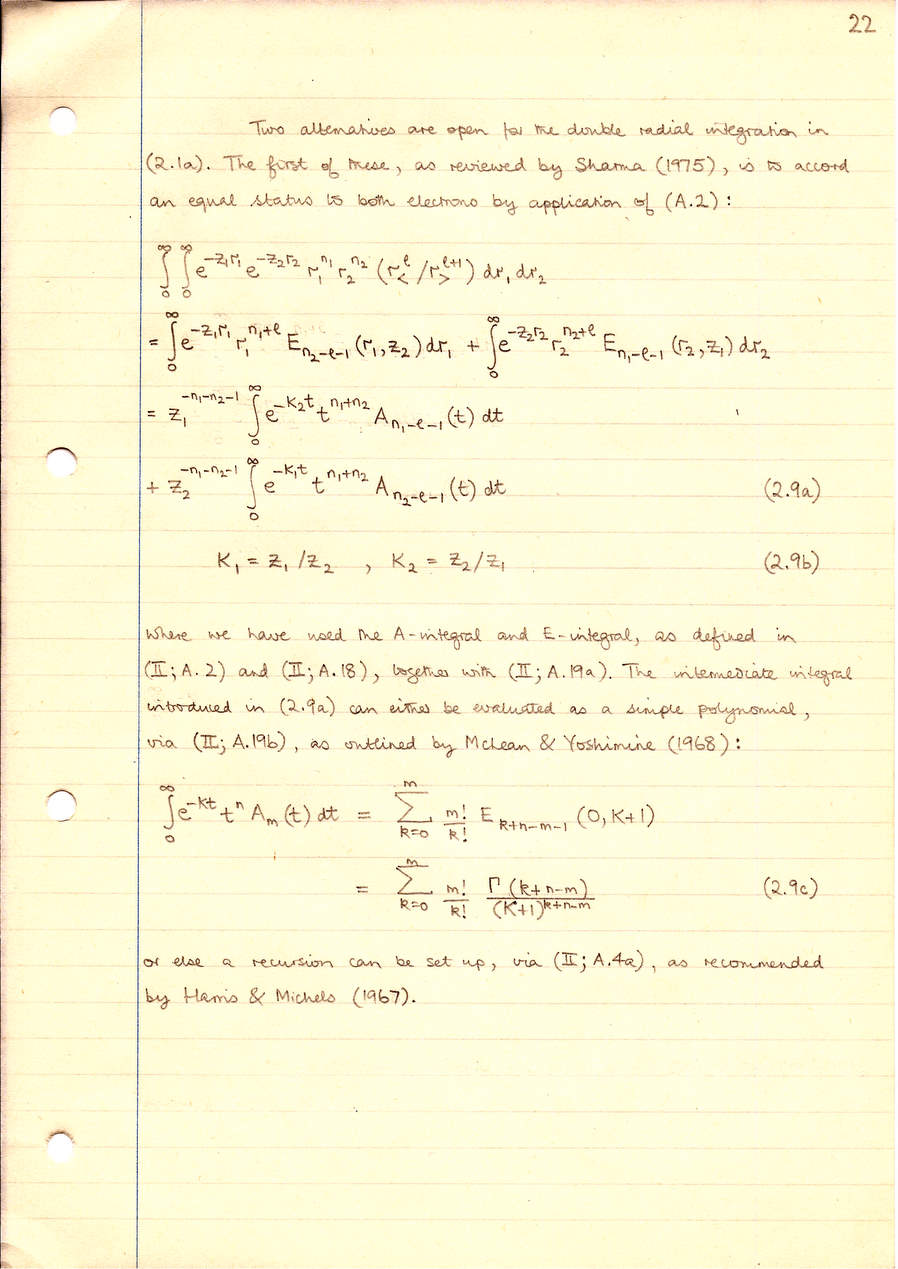 22
Two alternatives are open for the double radial integration in
(2.1a). The first of these, as reviewed by Sharma (1975), is to accord
an equal status to both electrons by application of (A.2):
∫₀^∞ ∫₀^∞ e^{-z₁r₁} e^{-z₂r₂} r₁^{n₁} r₂^{n₂} (r_<^ℓ / r_>^{ℓ+1}) dr₁ dr₂
= ∫₀^∞ e^{-z₁r₁} r₁^{n₁+ℓ} E_{n₂-ℓ-1} (r₁, z₂) dr₁ + ∫₀^∞ e^{-z₂r₂} r₂^{n₂+ℓ} E_{n₁-ℓ-1} (r₂, z₁) dr₂
= z₁^{-n₁-n₂-1} ∫₀^∞ e^{-K₂t} t^{n₁+n₂} A_{n₁-ℓ-1} (t) dt
+ z₂^{-n₁-n₂-1} ∫₀^∞ e^{-K₁t} t^{n₁+n₂} A_{n₂-ℓ-1} (t) dt (2.9a)
K₁ = z₁/z₂ , K₂ = z₂/z₁ (2.9b)
where we have used the A-integral and E-integral, as defined in
(II; A.2) and (II; A.18), together with (II; A.19a). The intermediate integral
introduced in (2.9a) can either be evaluated as a simple polynomial,
via (II; A.19b), as outlined by McLean & Yoshimine (1968):
∫₀^∞ e^{-Kt} t^n A_m (t) dt = ∑_{k=0}^{m} m!/k! E_{k+n-m-1} (0, K+1)
= ∑_{k=0}^{m} m!/k! Γ(k+n-m)/(K+1)^{k+n-m} (2.9c)
or else a recursion can be set up, via (II; A.4a), as recommended
by Harris & Michels (1967).